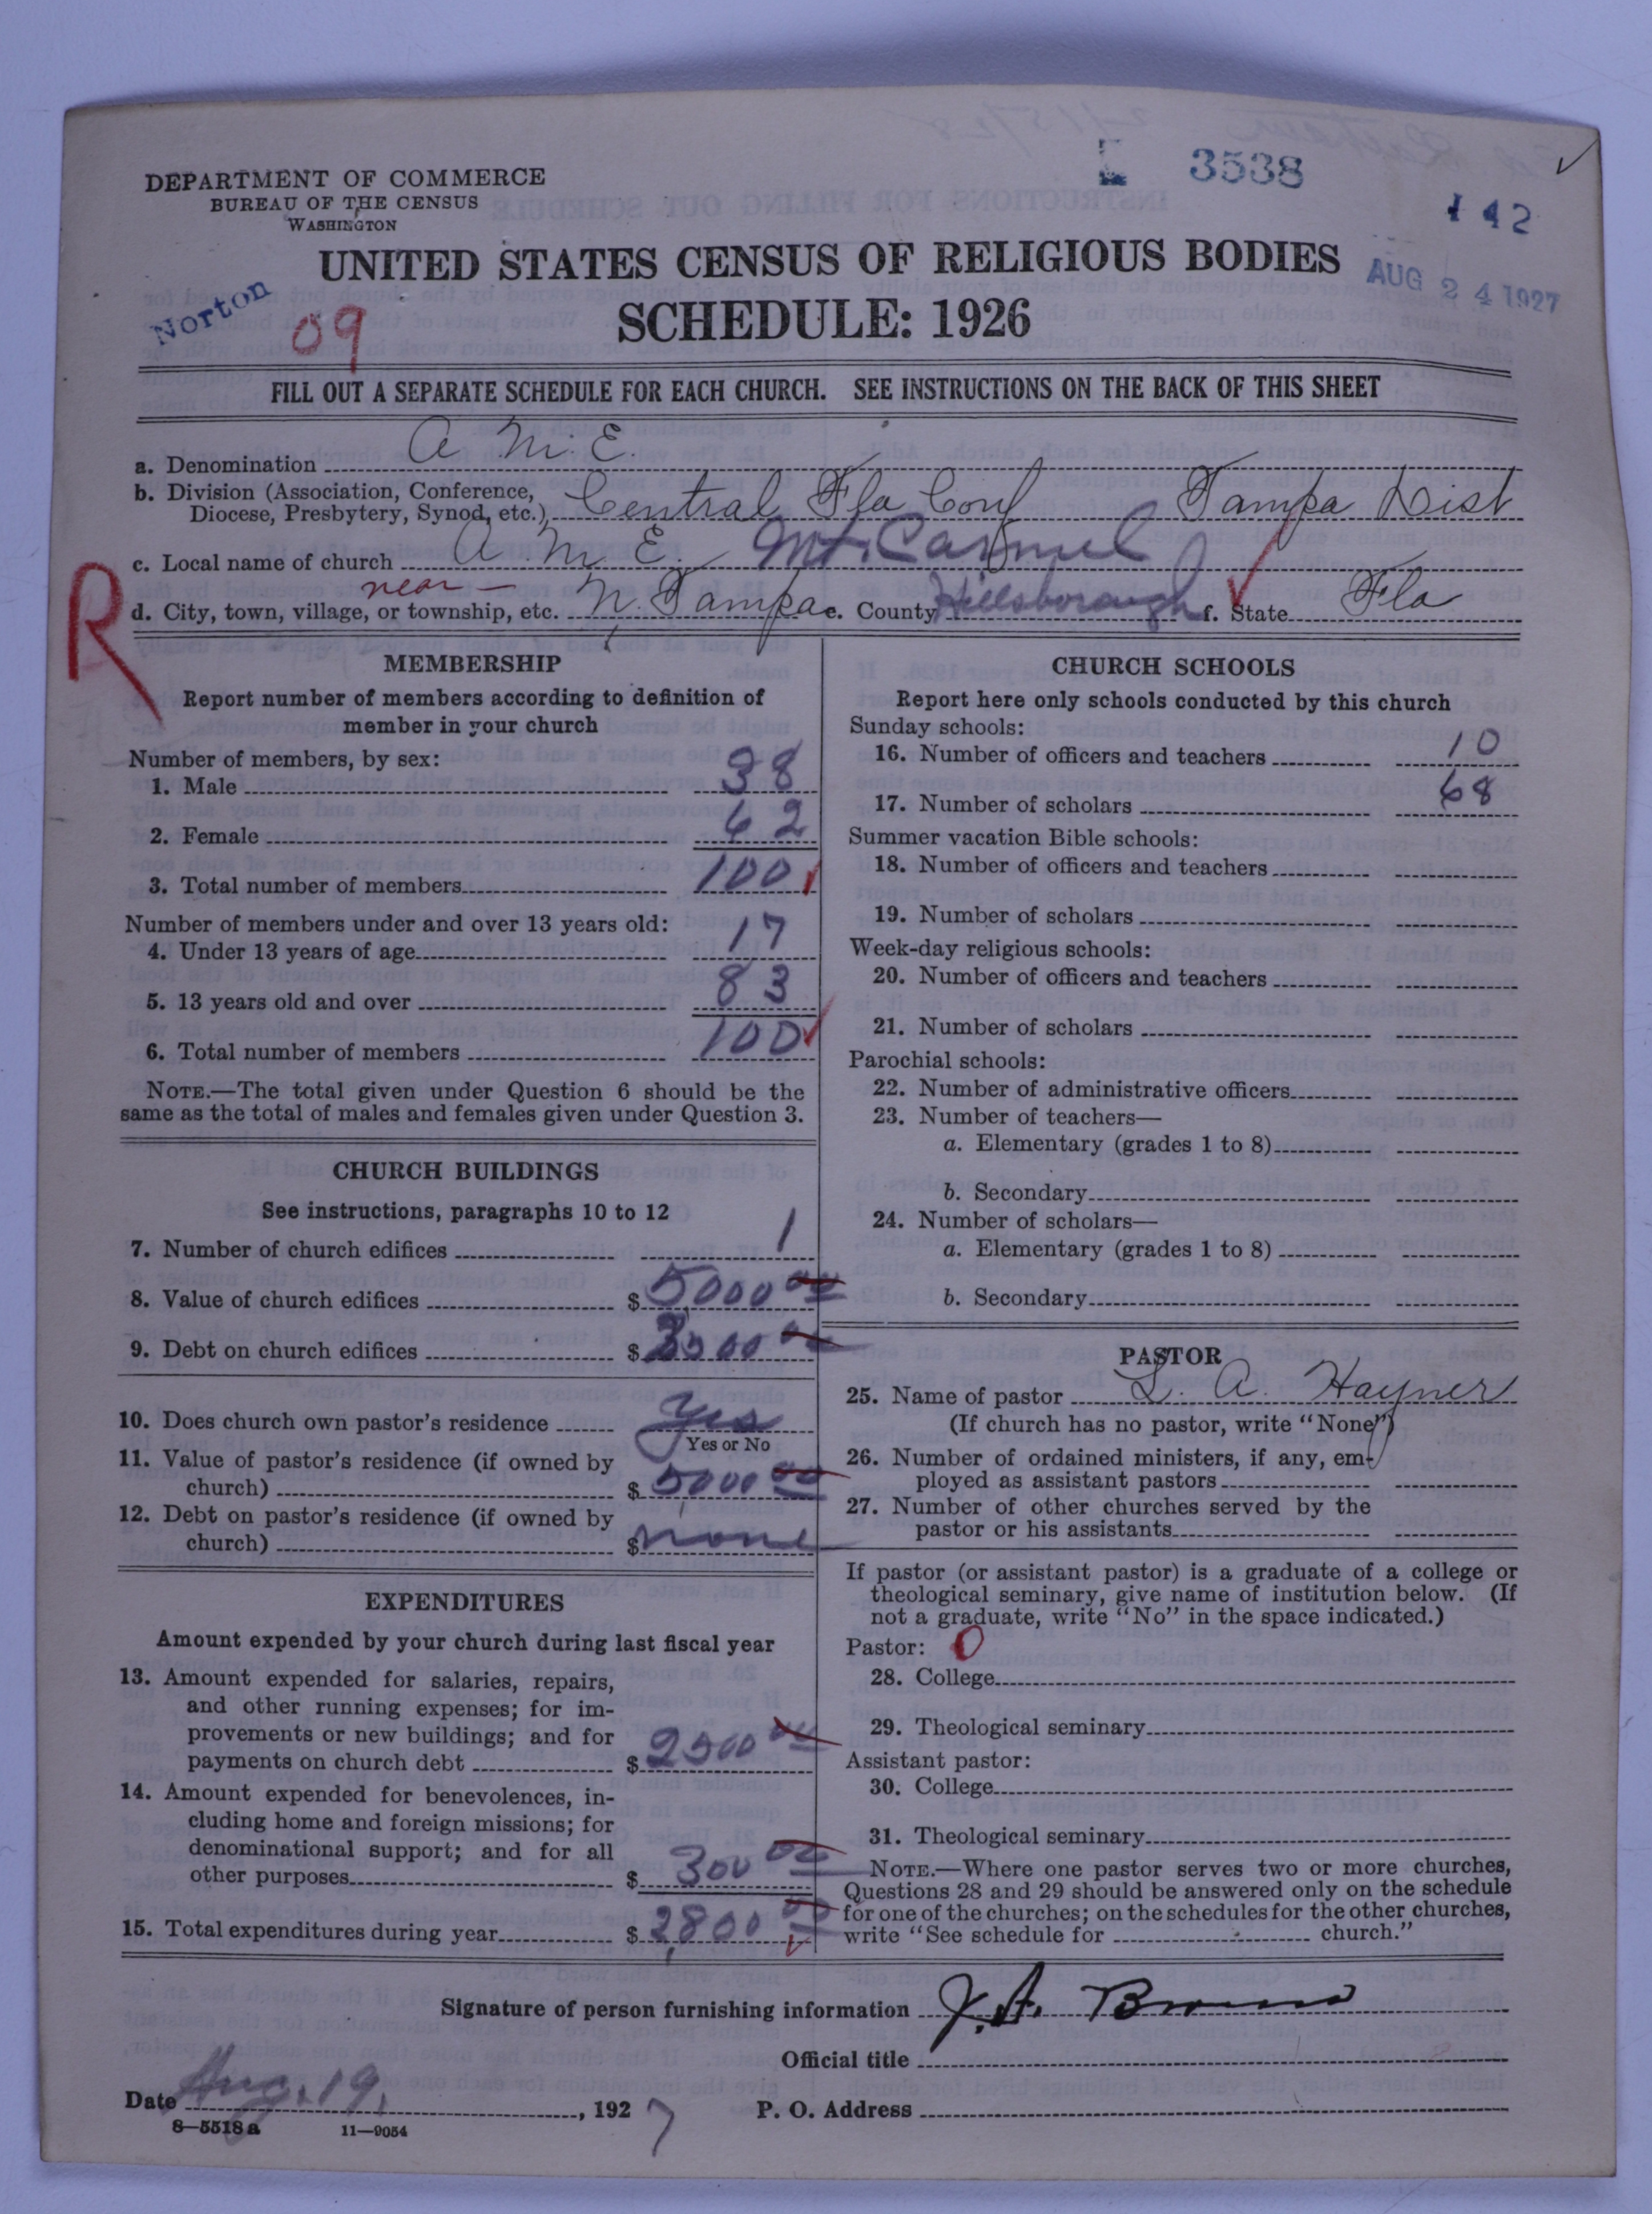 3538
142
DEPARTMENT OF COMMERCE
BUREAU OF THE CENSUS
WASHINGTON
UNITED STATES CENSUS OF RELIGIOUS BODIES
AUG 24 1927
Norton
09
SCHEDULE: 1926
FILL OUT A SEPARATE SCHEDULE FOR EACH CHURCH. SEE INSTRUCTIONS ON THE BACK OF THIS SHEET
a. Denomination A. M. E.
b. Division (Association, Conference, Diocese, Presbytery, Synod, etc.) Central Fla Conf Tampa Dist
c. Local name of church A. M. E. Mt. Carmel
near
d. City, town, village, or township, etc. N. Tampa e. County Hillsborough f. State Fla
R
MEMBERSHIP
Report number of members according to definition of
member in your church
Number of members, by sex:
1. Male 38
2. Female 62
3. Total number of members 100
Number of members under and over 13 years old:
4. Under 13 years of age 17
5. 13 years old and over 83
6. Total number of members 100
NOTE.—The total given under Question 6 should be the
same as the total of males and females given under Question 3.
CHURCH BUILDINGS
See instructions, paragraphs 10 to 12
7. Number of church edifices 1
8. Value of church edifices $ 5000 00
9. Debt on church edifices $
10. Does church own pastor's residence Yes
Yes or No
11. Value of pastor's residence (if owned by
church) $ 5000 00
12. Debt on pastor's residence (if owned by
church) $ none
EXPENDITURES
Amount expended by your church during last fiscal year
13. Amount expended for salaries, repairs,
and other running expenses; for im-
provements or new buildings; and for
payments on church debt $ 2500 00
14. Amount expended for benevolences, in-
cluding home and foreign missions; for
denominational support; and for all
other purposes $ 300 00
15. Total expenditures during year $ 2,800 00
CHURCH SCHOOLS
Report here only schools conducted by this church
Sunday schools:
16. Number of officers and teachers 10
17. Number of scholars 68
Summer vacation Bible schools:
18. Number of officers and teachers
19. Number of scholars
Week-day religious schools:
20. Number of officers and teachers
21. Number of scholars
Parochial schools:
22. Number of administrative officers
23. Number of teachers—
a. Elementary (grades 1 to 8)
b. Secondary
24. Number of scholars—
a. Elementary (grades 1 to 8)
b. Secondary
PASTOR
25. Name of pastor L. A. Hayner
(If church has no pastor, write "None")
26. Number of ordained ministers, if any, em-
ployed as assistant pastors
27. Number of other churches served by the
pastor or his assistants
If pastor (or assistant pastor) is a graduate of a college or
theological seminary, give name of institution below. (If
not a graduate, write "No" in the space indicated.)
Pastor: 0
28. College
29. Theological seminary
Assistant pastor:
30. College
31. Theological seminary
NOTE.—Where one pastor serves two or more churches,
Questions 28 and 29 should be answered only on the schedule
for one of the churches; on the schedules for the other churches,
write "See schedule for church."
Signature of person furnishing information J. A. Brown
Official title
Date Aug. 19, 1927 P. O. Address
8—5518a 11—9054